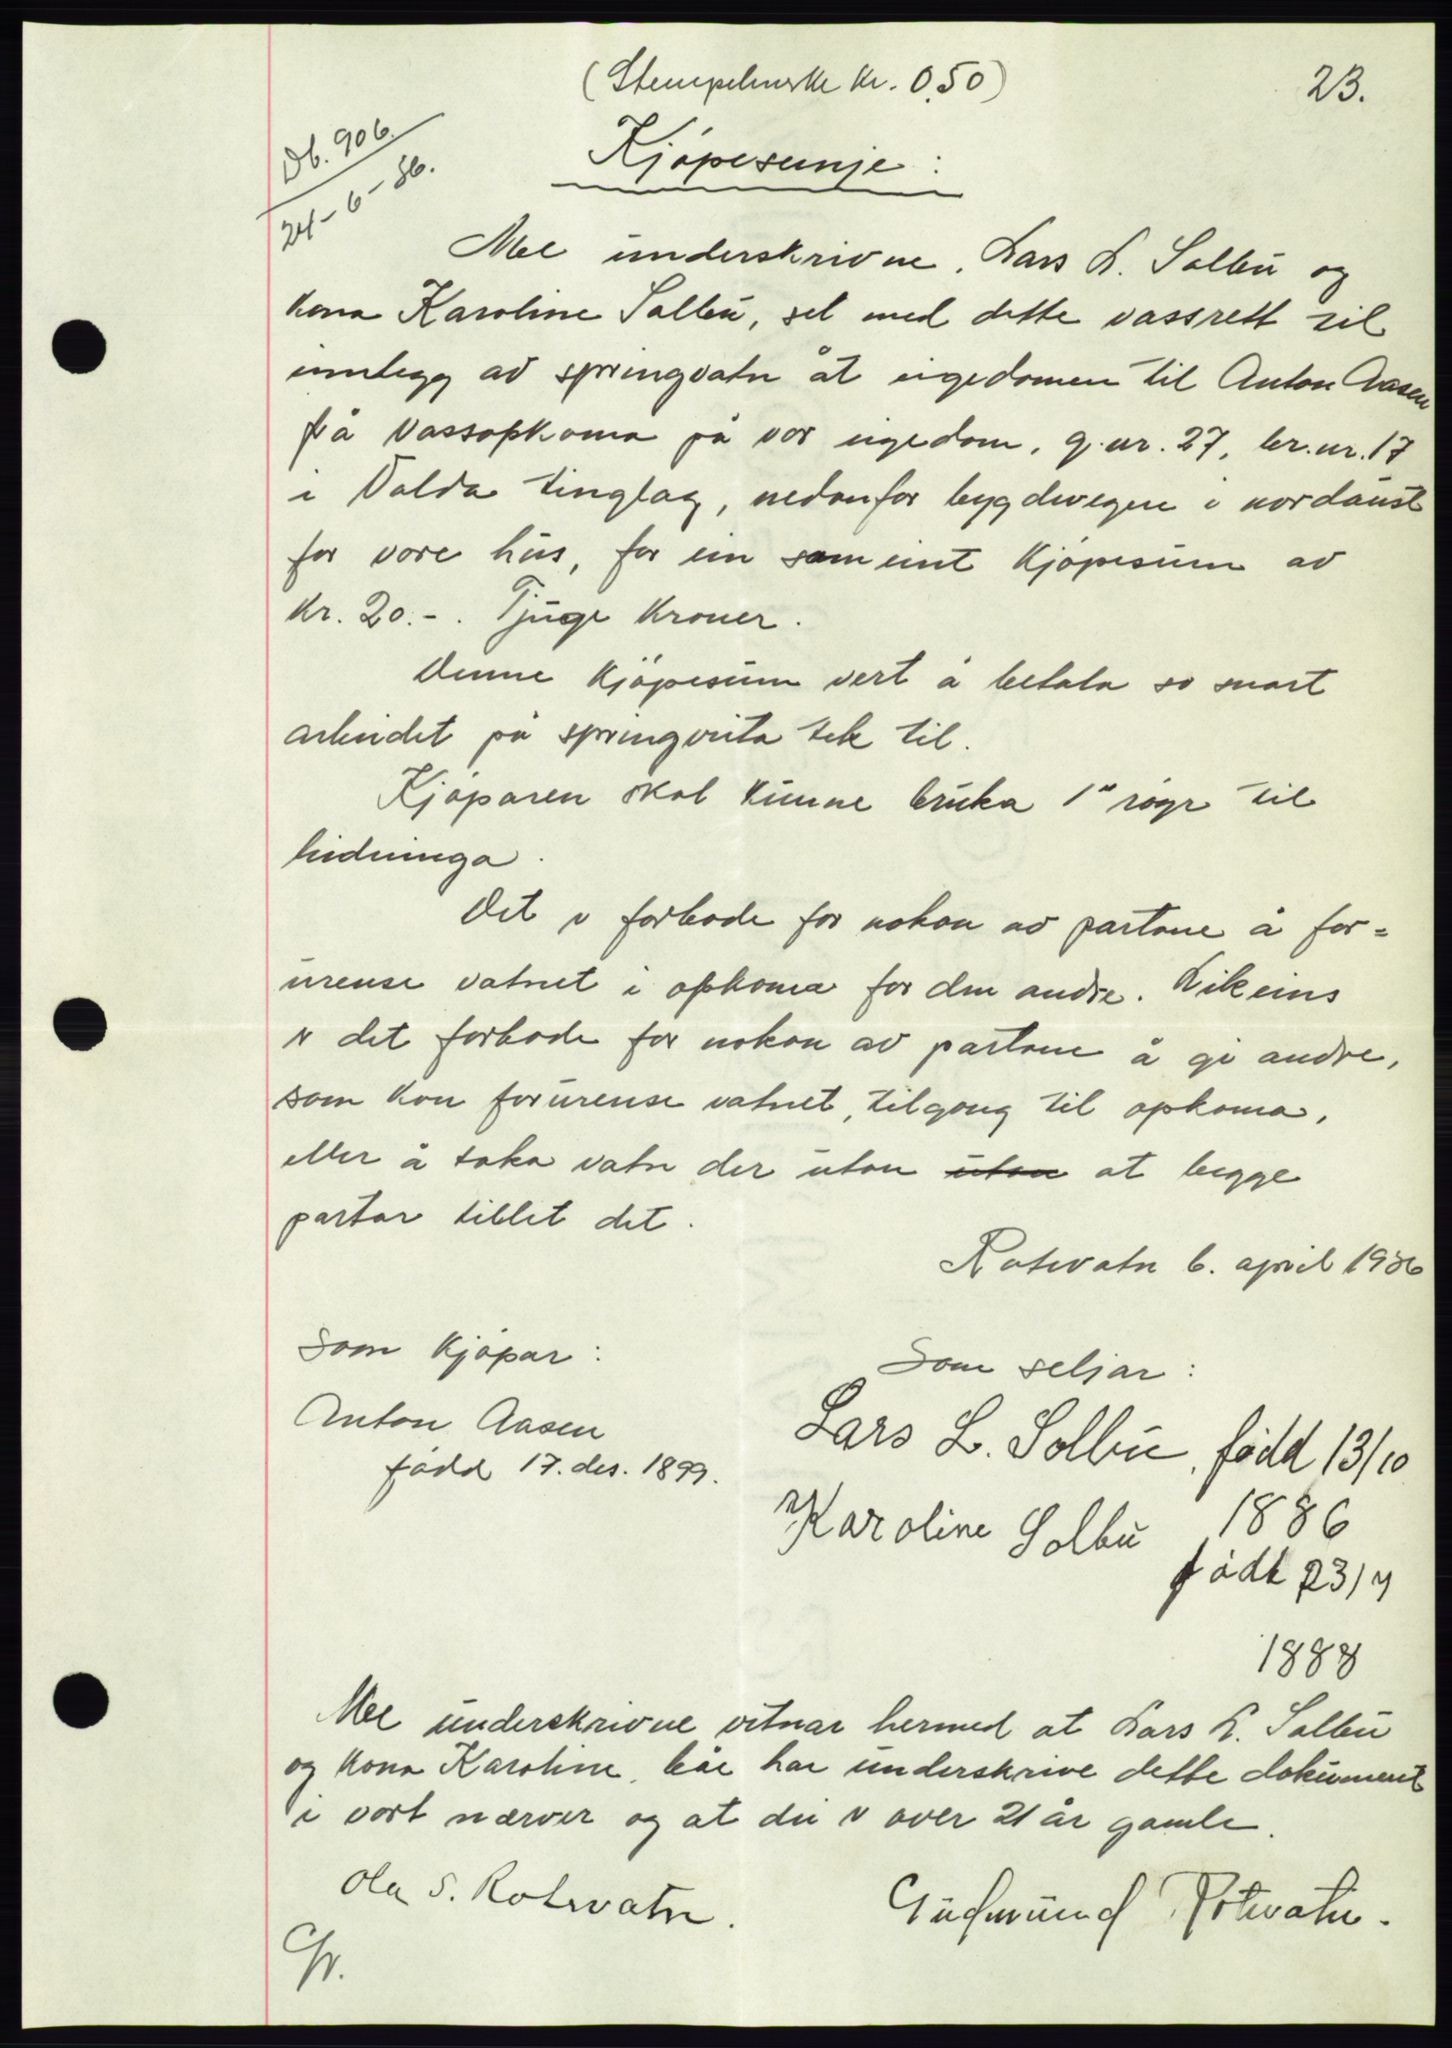 (Stempelmerke kr. 0,50)
23.
Db. 906.
24-6-36.
Kjøpesemje:
Me underskrivne, Lars L. Solbu og
kona Karoline Solbu, sel med dette vassrett til
innlegg av springvatn åt eigedomen til Anton Aasen
frå vassopkoma på vor eigedom, g.nr. 27, br.nr. 17
i Volda tinglag, nedanfor bygdevegen i nordaust
for vore hus, for ein sameint kjøpesum av
kr. 20.-. Tjuge kroner.
Denne kjøpesum vert å betala so snart
arbeidet på springveita tek til.
Kjøparen skal kunne bruka 1" røyr til
leidninga.
Det er forbode for nokon av partane å for-
ureinse vatnet i opkoma for den andre. Likeins
er det forbode for nokon av partane å gi andre,
som kan forureinse vatnet, tilgong til opkoma,
eller å taka vatn der utan utan at begge
partar tillet det.
Rotevatn 6. april 1936
Som kjøpar:
Som seljar:
Anton Aasen
født 17. des. 1899.
Lars L. Solbu, født 13/10
1886
Karoline Solbu
født 23/7
1888
Me underskrivne vitnar hermed at Lars L. Solbu
og kona Karoline, båe har underskrive dette dokument
i vort nærver og at dei er over 21 år gamle.
Ola S. Rotevatn.
Gudmund Rotevatn.